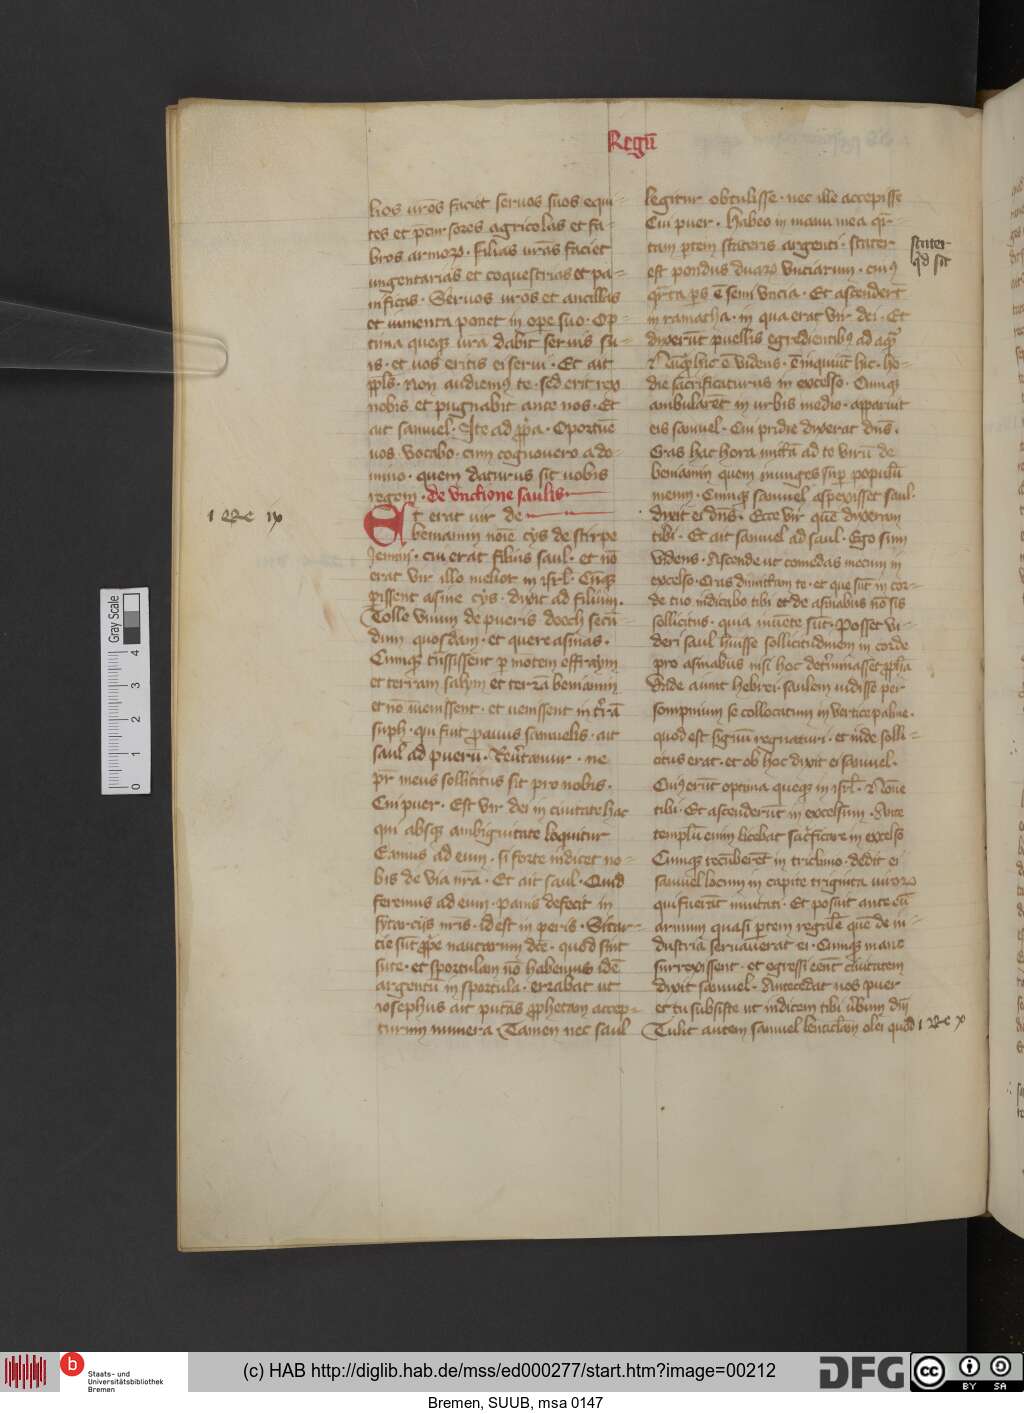 Regū
lios vr̄os faciet servos suos equi-
tes et precursores agricolas et fa-
bros armorꝝ · filias vr̄as faciet
ungentarias et coquestrias et pa-
nificas · Servos vr̄os et ancillas
et iumenta ponet in ope suo · Op-
tima queqꝫ vr̄a dabit servis su-
is · et vos eritis ei servi · Et ait
ppl̄s · Non audiemꝰ te · sed erit rex
nobis et pugnabit ante nos · Et
ait samuel · Ite ad ppr̄a · Oportune
vos vocabo · cum cognovero a do-
mino · quem daturus sit vobis
regem · de Unctione saulis
Et erat vir de
1 Re ix
beniamin noīe cys de stirpe
Jemini · cui erat filius saul · et nō
erat vir illo melior in isrl̄ · Cūqꝫ
pissent asine cys · dixit ad filium ·
Tolle unum de pueris doech secū
dum quosdam · et quere asinas ·
Cumqꝫ trāsissent p montem effraym
et terram salym et terrā beniamin
et nō īvenissent · et venissent in t̄rā
suph · qui fuit proavus samuelis · ait
saul ad puerū · Revertamur · ne
pr̄ meus sollicitus sit pro nobis ·
Cui puer · Est vir dei in civitate hac
qui absqꝫ ambiguitate loquitur
Eamus ad eum · si forte indicet no-
bis de via nr̄a · Et ait saul · Quid
feremus ad eum · panis defecit in
sytarciis nr̄is · id est in peris · Sitar-
cie sūt ppe nautarum dcē · quod sint
sute · et sportulam nō habemus idē
argenti in sportula · errabat ut
iosephus ait putās pphetam accep-
turum munera Tamen nec saul
legitur obtulisse · nec ille accepisse
Cui puer · habeo in manu mea qr̄-
tam ptem stateris argenti · stater
stater
qd̄ sit
est pondus duarꝝ Unciarum · cuiꝰ
qr̄ta ps ē semi Uncia · Et ascenderūt
in ramatha · in qua erat vir dei · Et
dixerūt puellis egredientibꝰ ad aquā
Nūquid hic ē videns · ē inquiūt hic · ho-
die sacrificaturus in excelso · Cumqꝫ
ambularēt in urbis medio · apparuit
eis samuel · Cui pridie dixerat dn̄s ·
Cras hac hora mittā ad te virū de
beniamin quem inunges sup populū
meum · Cumqꝫ samuel aspexisset saul ·
dixit ei dn̄s · Ecce vir quē dixeram
tibi · Et ait samuel ad saul · Ego sum
videns · Ascende ut comedas mecum in
excelso · Cras dimittam te · et que sūt in cor-
de tuo indicabo tibi et de asinabus nō sis
sollicitus · quia invēte sūt · Posset vi-
deri saul huisse sollicitudinem in corde
pro asinabus nisi hoc det̄minasset ppha
Unde aiunt hebrei · saulem vidisse per
sompnium se collocatum in vertice palme ·
quod est signū regnaturi · et inde solli-
citus erat · et ob hoc dixit ei samuel ·
Cuiꝰ erūt optima queqꝫ in isrl̄ · Nōne
tibi · Et ascenderūt in excelsum · Ante
templū enim licebat sacrificare in excelso
Cumqꝫ recūberēt in triclinio · dedit ei
samuel locum in capite triginta virorꝝ
qui fuerāt invitati · Et posuit ante eū
armum quasi ptem regalē quē de in-
dustria servaverat ei · Cumqꝫ mane
surrexissent · et egressi eēnt civitatem
dixit samuel · Antecedat nos puer
et tu subsiste ut indicem tibi verbum dn̄i
Tulit autem samuel lenticulam olei quod
1 Re x
Gray Scale
4
3
2
1
0
Staats- und
Universitätsbibliothek
Bremen
(c) HAB http://diglib.hab.de/mss/ed000277/start.htm?image=00212
DFG
cc
BY SA
Bremen, SUUB, msa 0147